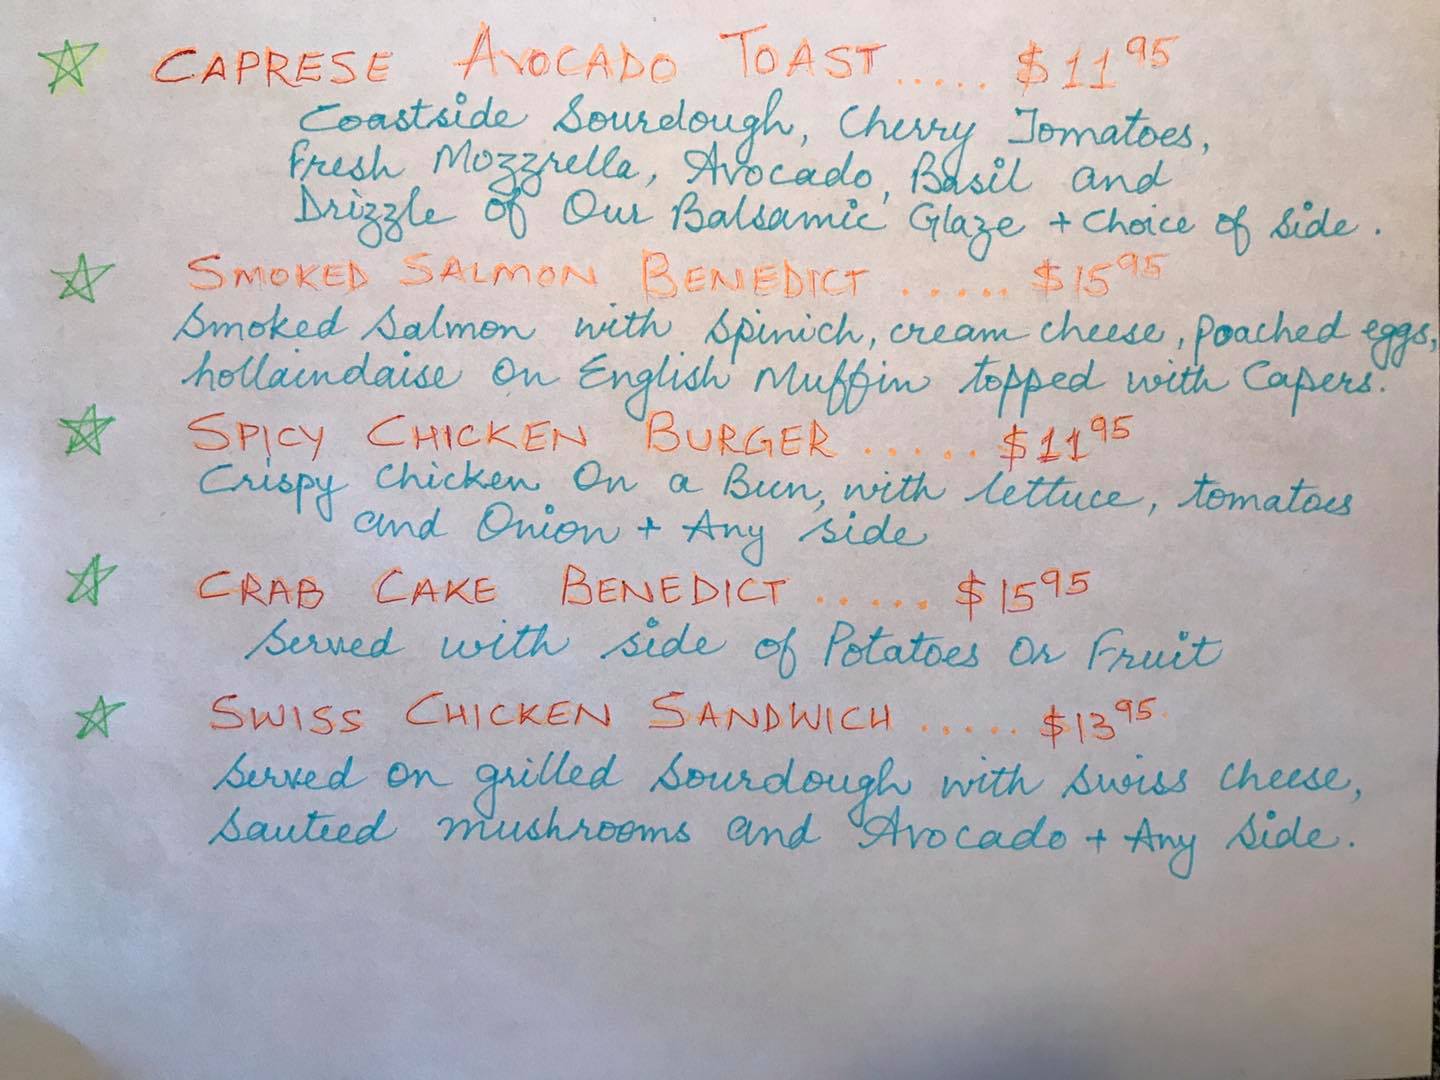 CAPRESE AVOCADO TOAST..... $11 95
Coastside Sourdough, Cherry Tomatoes,
Fresh Mozzrella, Avocado, Basil and
Drizzle of Our Balsamic Glaze + Choice of side.
SMOKED SALMON BENEDICT ..... $15 95
Smoked Salmon with Spinich, cream cheese, poached eggs,
hollaindaise On English Muffin topped with Capers.
SPICY CHICKEN BURGER ..... $11 95
Crispy Chicken On a Bun, with lettuce, tomatoes
and Onion + Any side
CRAB CAKE BENEDICT ..... $15 95
Served with side of Potatoes Or Fruit
SWISS CHICKEN SANDWICH ..... $13 95
Served on grilled Sourdough with Swiss Cheese,
Sauteed mushrooms and Avocado + Any Side.